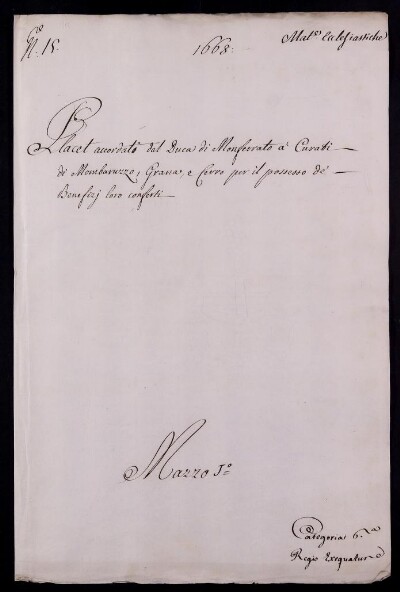 N.º 15.
1668.
Mat.e ecclesiastiche
Placet accordati dal Duca di Monferrato a' Curati
di Mombaruzzo, Grana, e Cerro per il possesso de'
Benefizj loro conferti
Mazzo J.º
Categoria 6.ta
Regio Exequatur